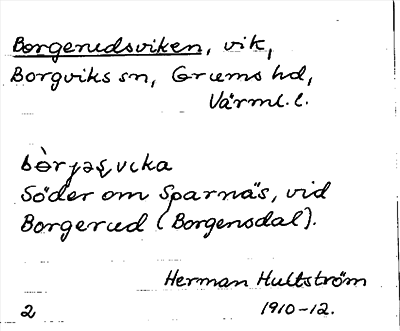 Borgerudsviken, vik,
Borgviks sn, Grums hd,
Värml. l.
Söder om Sparnäs, vid
Borgerud (Borgensdal).
Herman Hultström
2 1910-12.